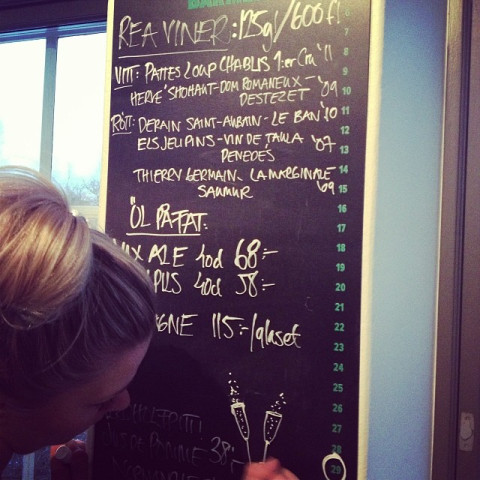 REA VINER: 125gl/600fl
VITT: PATTES LOUP CHABLIS 1:er Cru '11
HERVÉ SHOHAUT-DOM ROMANEUX-
DESTEZET '09
RÖTT: DERAIN SAINT-AUBAIN - LE BAN '10
ELS JELIPINS - VIN DE TAULA '07
PENEDÉS
THIERRY GERMAIN - LA MARGINALE
SAUMUR '09
ÖL PÅ FAT:
ALE 40cl 68:-
40cl 58:-
115:-/glaset
38:-
6
7
8
9
10
11
12
13
14
15
16
17
18
19
20
21
22
23
24
25
26
27
28
29